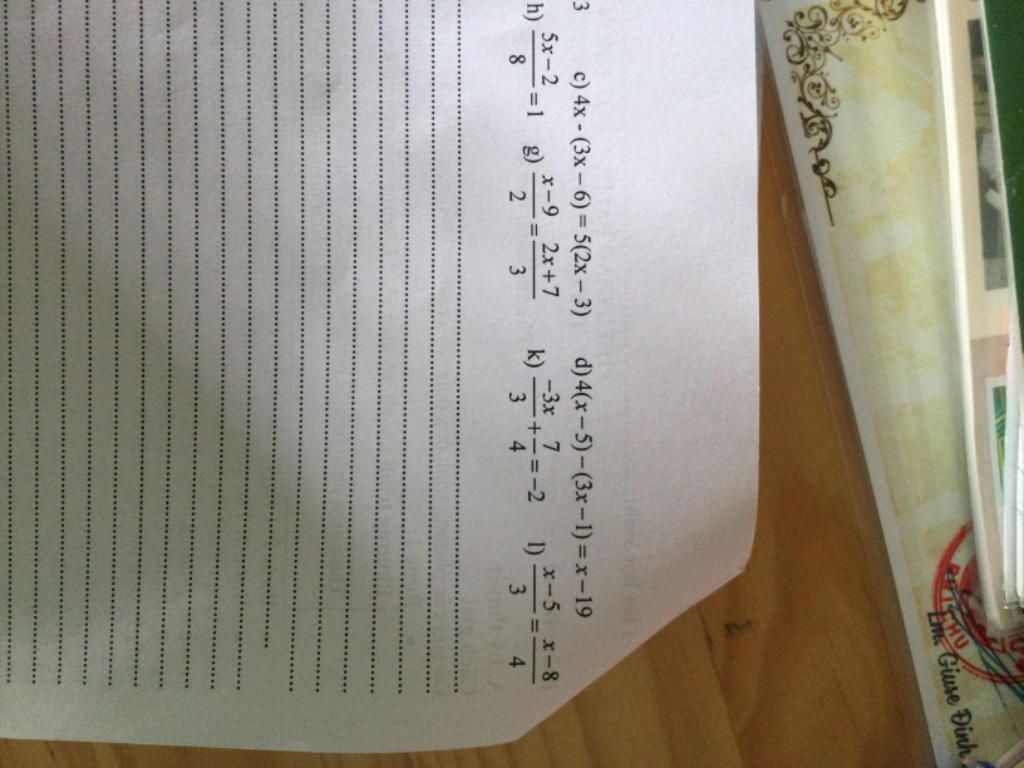 3 c) 4x - (3x – 6) = 5(2x – 3) d)4(x–5)–(3x–1)=x–19
h) \frac{5x-2}{8}=1 g) \frac{x-9}{2}=\frac{2x+7}{3} k) \frac{-3x}{3}+\frac{7}{4}=-2 l) \frac{x-5}{3}=\frac{x-8}{4}
Lm Giuse Đinh